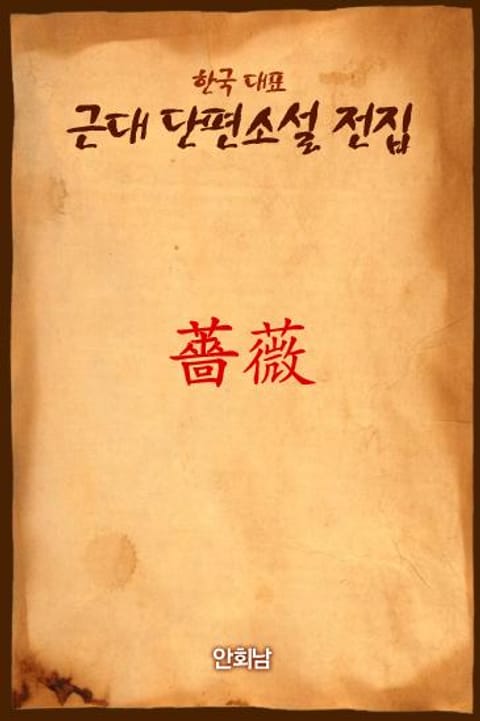 한국 대표
근대 단편소설 전집
薔薇
안회남